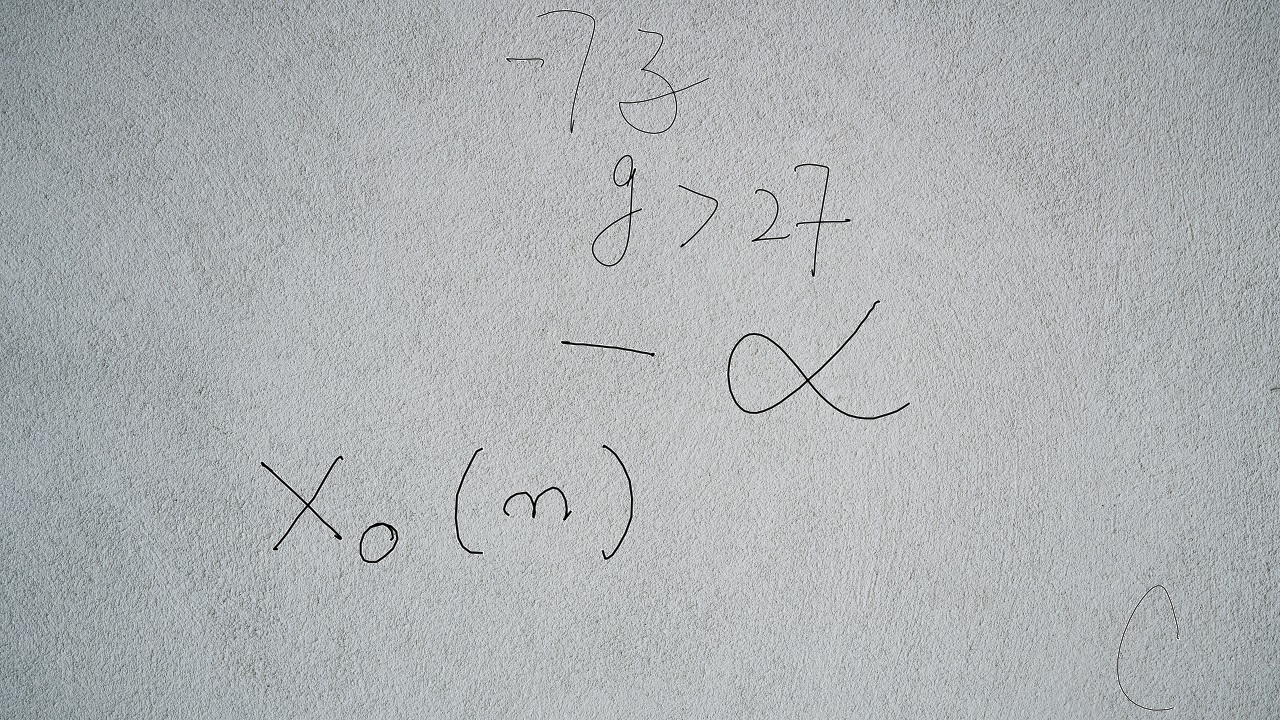 -73
g > 27
- α
X₀ (m)